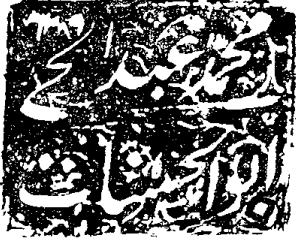 محمد عبد الحی
ابو الحسنات